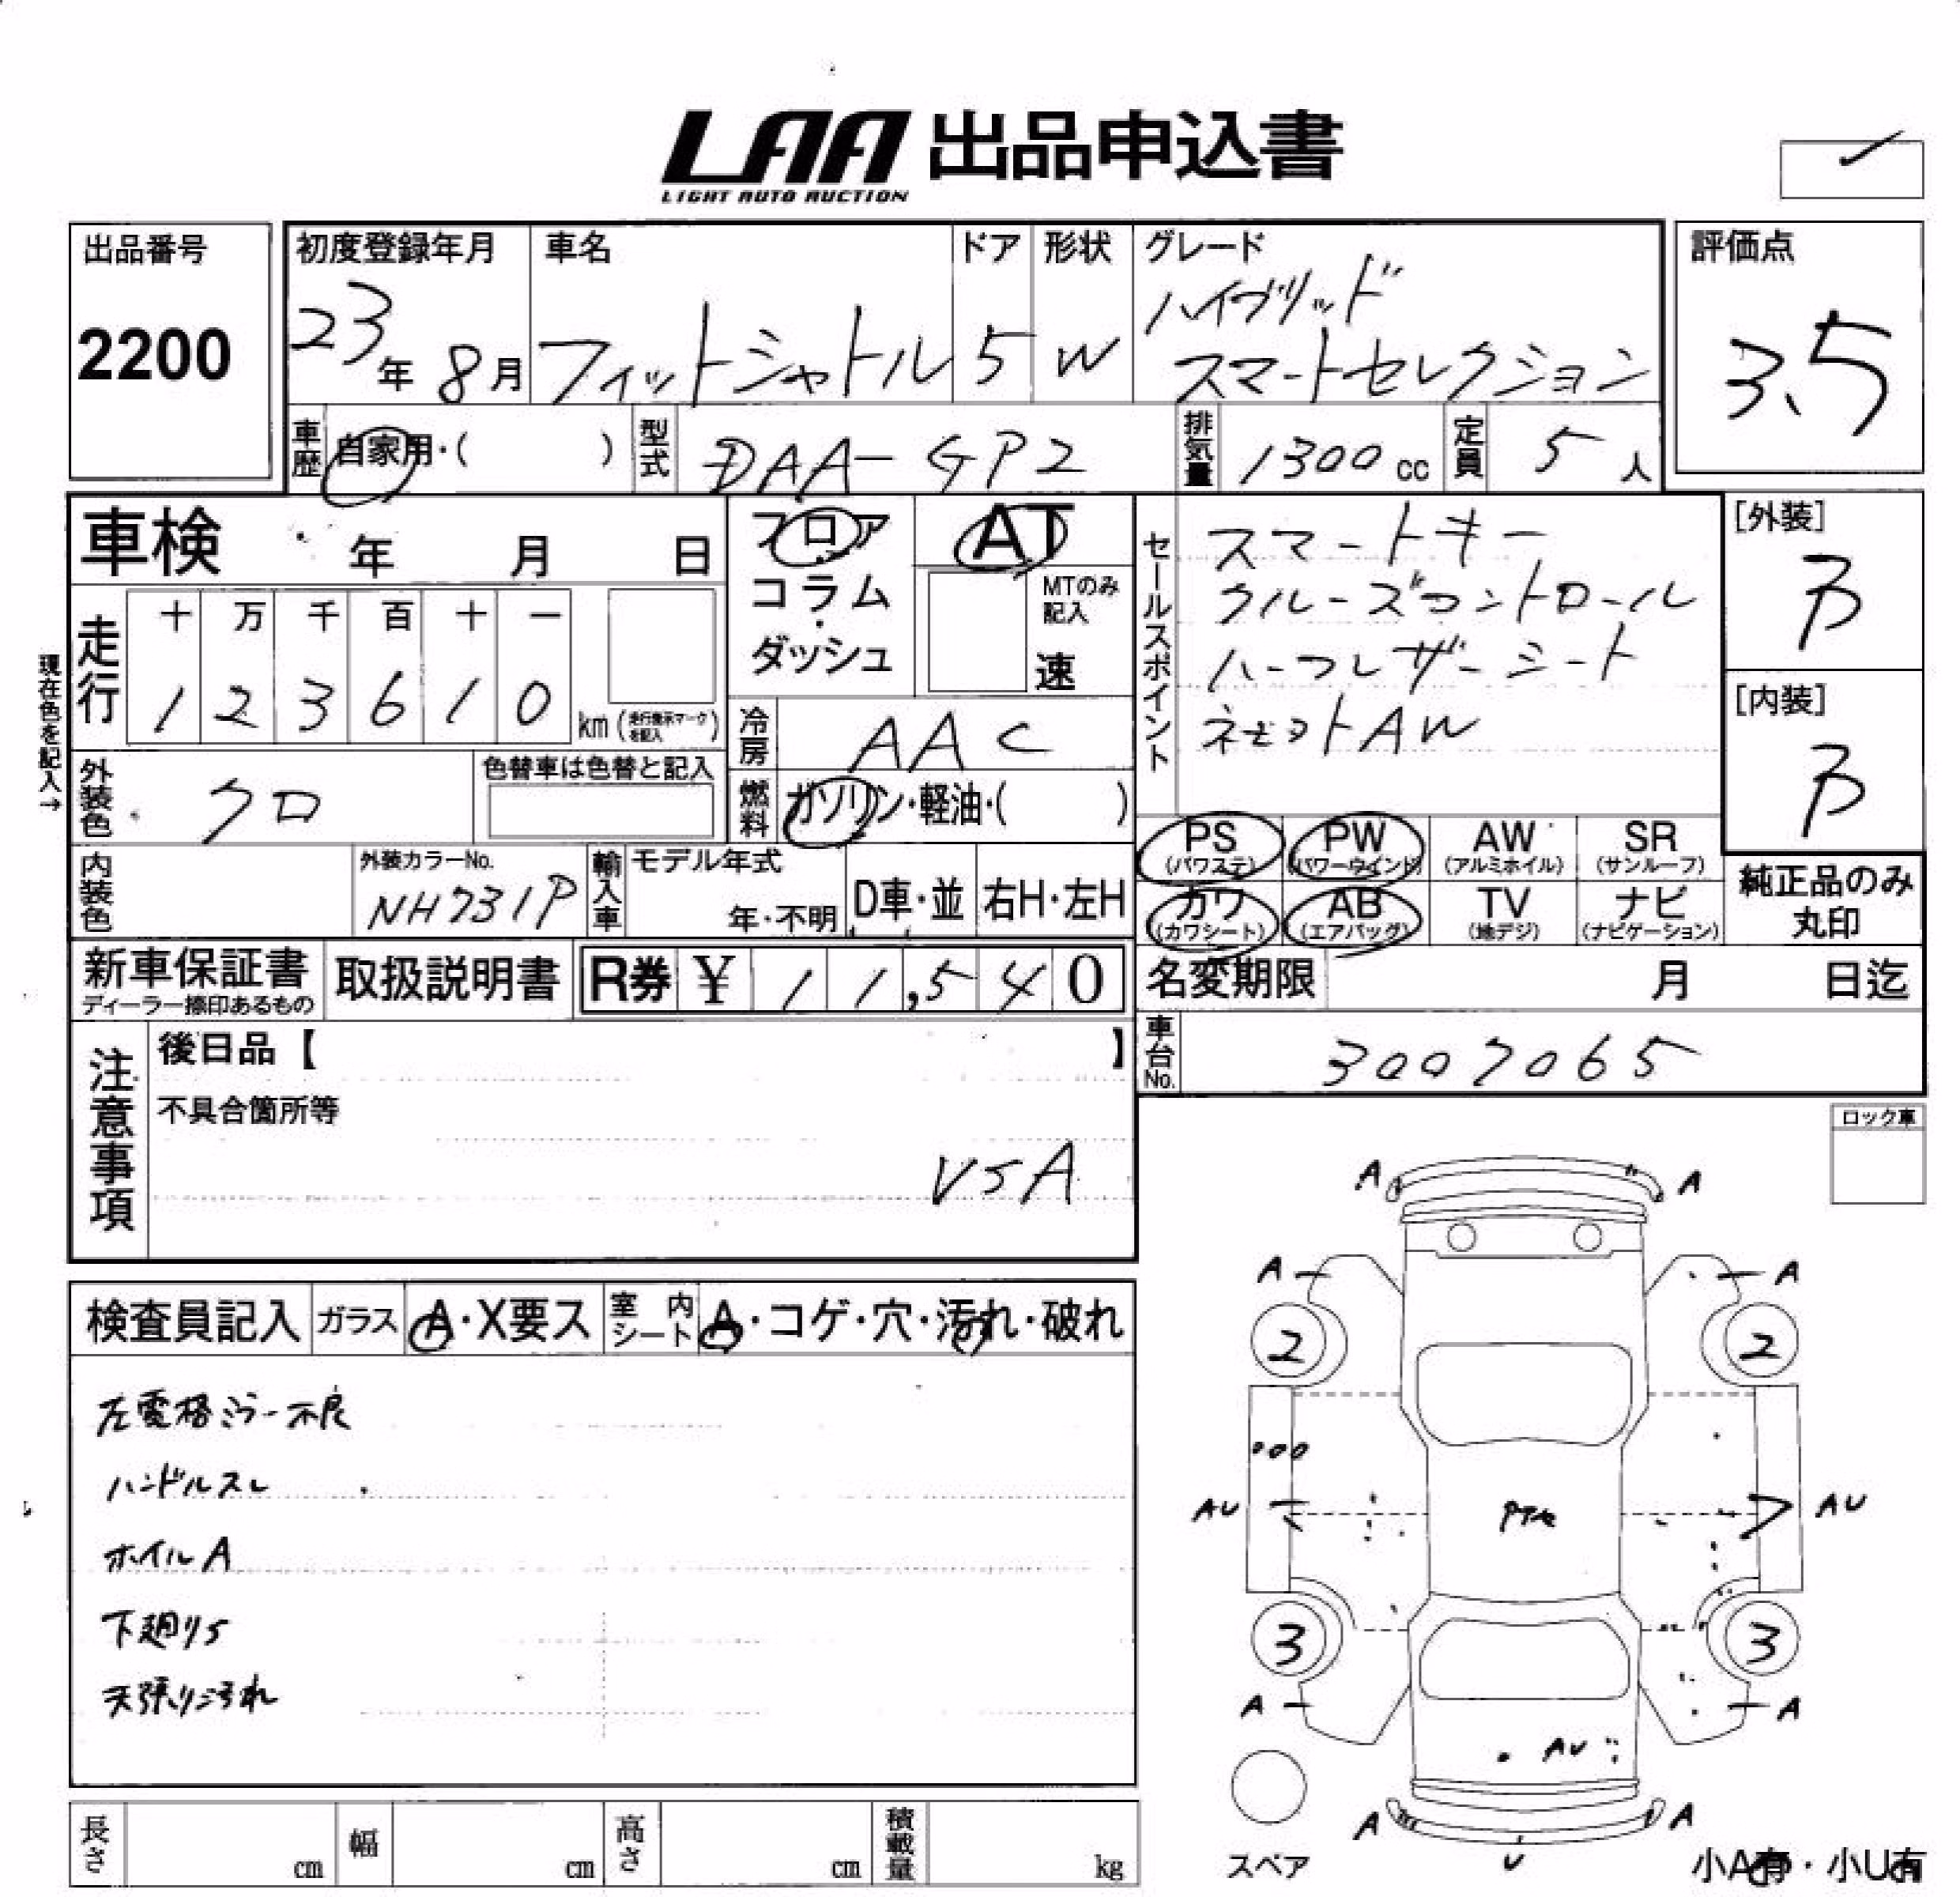 LAA 出品申込書
LIGHT AUTO AUCTION
出品番号
2200
初度登録年月
23年 8月
車名
フィットシャトル
ドア
5
形状
W
グレード
ハイブリッド
スマートセレクション
評価点
3.5
車歴 自家用・( )
型式 DAA-GP2
排気量 1300 cc
定員 5 人
車検 年 月 日
フロア・コラム・ダッシュ
AT
MTのみ記入
速
現在色を記入→
走行
十 万 千 百 十 一
1 2 3 6 1 0 km (走行指示マークを記入)
冷房 AAC
燃料 ガソリン・軽油・( )
外装色 クロ
色替車は色替と記入
内装色
外装カラーNo.
NH731P
輸入車
モデル年式
年・不明
D車・並
右H・左H
セールスポイント
スマートキー
クルーズコントロール
ハーフレザーシート
社外AW
[外装]
B
[内装]
B
PS (パワステ)
PW (パワーウインド)
AW (アルミホイル)
SR (サンルーフ)
カワ (カワシート)
AB (エアバッグ)
TV (地デジ)
ナビ (ナビゲーション)
純正品のみ
丸印
新車保証書
ディーラー捺印あるもの
取扱説明書
R券 ¥ 11,540
名変期限 月 日迄
車台No. 3007065
注意事項
後日品【 】
不具合箇所等
VSA
ロック車
検査員記入
ガラス A・X要ス
室内シート A・コゲ・穴・汚れ・破れ
左電格ミラー不良
ハンドルスレ
ホイルA
下廻りS
天張り汚れ
A A
A A
2 2
AU AU
3 3
A A
AU
A A
U
スペア
小A有・小U有
長さ cm
幅 cm
高さ cm
積載量 kg